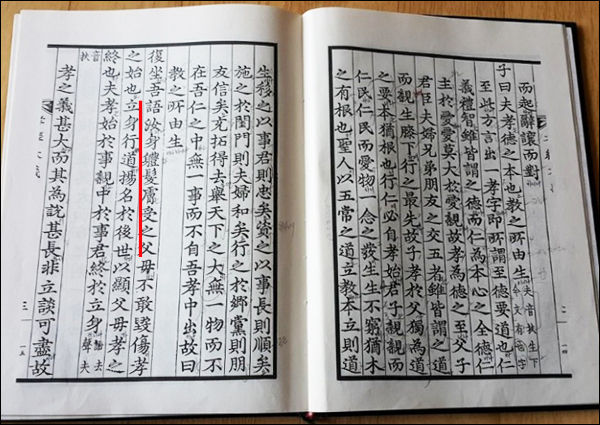 而起辭讓而對
子曰夫孝德之本也教之所由生夫音扶生下今文有也字
至此方言出一孝字即所謂至德要道也仁
義禮智雖皆謂之德而仁為本心之全德仁
主於愛愛莫大於愛親故孝為德之至父子
君臣夫婦兄弟朋友之交五者雖皆謂之道
而親生膝下行之最先故子孝於父獨為道
之要本猶根也行仁必自孝始君子親親而
仁民仁民而愛物一念之發生生不窮猶木
之有根也聖人以五常之道立教本立則道
生移之以事君則忠矣資之以事長則順矣
施之於閨門則夫婦和矣行之於鄉黨則朋
友信矣充拓得去舉天下之大無一物而不
在吾仁之中無一事而不自吾孝中出故曰
教之所由生
復坐吾語汝身體髮膚受之父母不敢毀傷孝
之始也立身行道揚名於後世以顯父母孝之
終也夫孝始於事親中於事君終於立身語去聲夫
音扶
孝之義甚大而其為說甚長非立談可盡故
三
一五